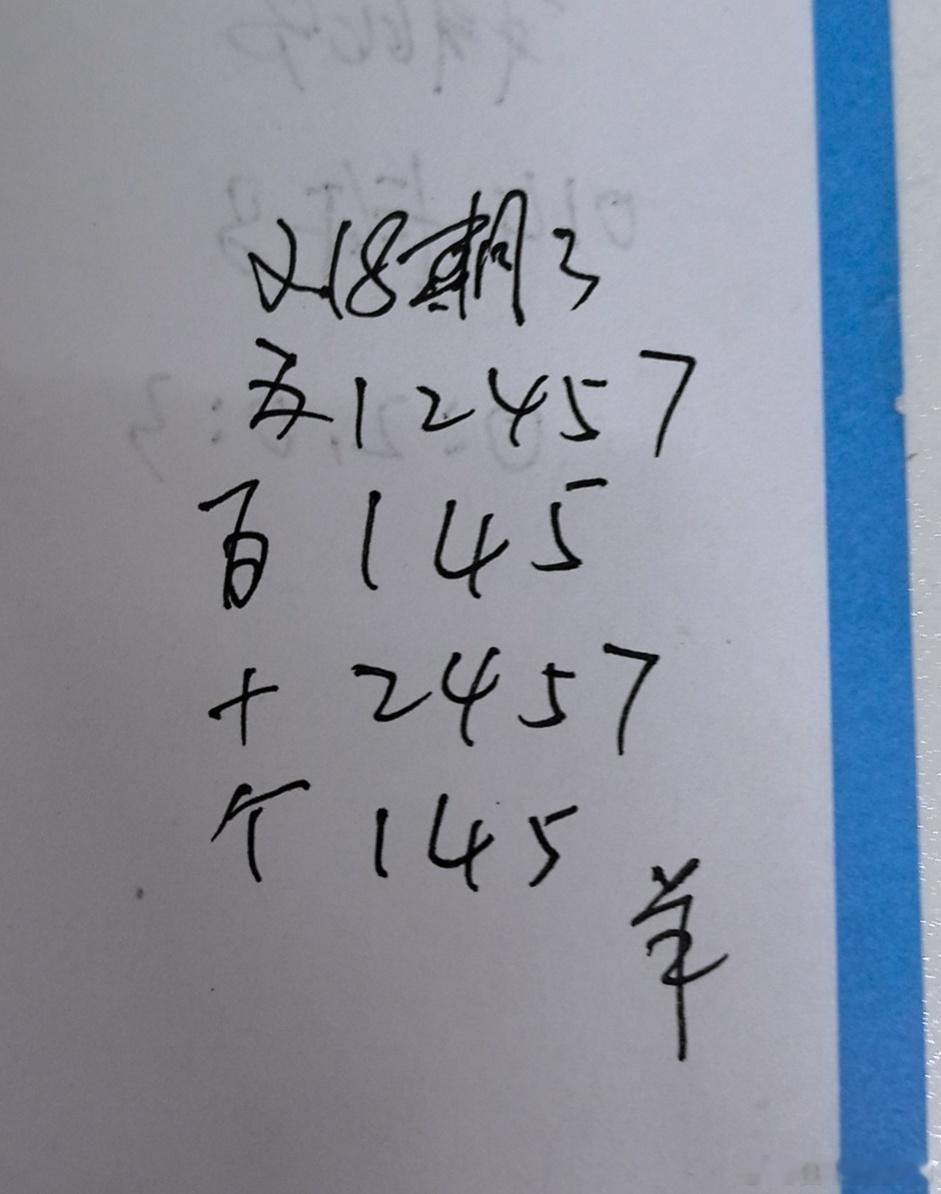 218期3
12457
百 145
十 2457
个 145
羊